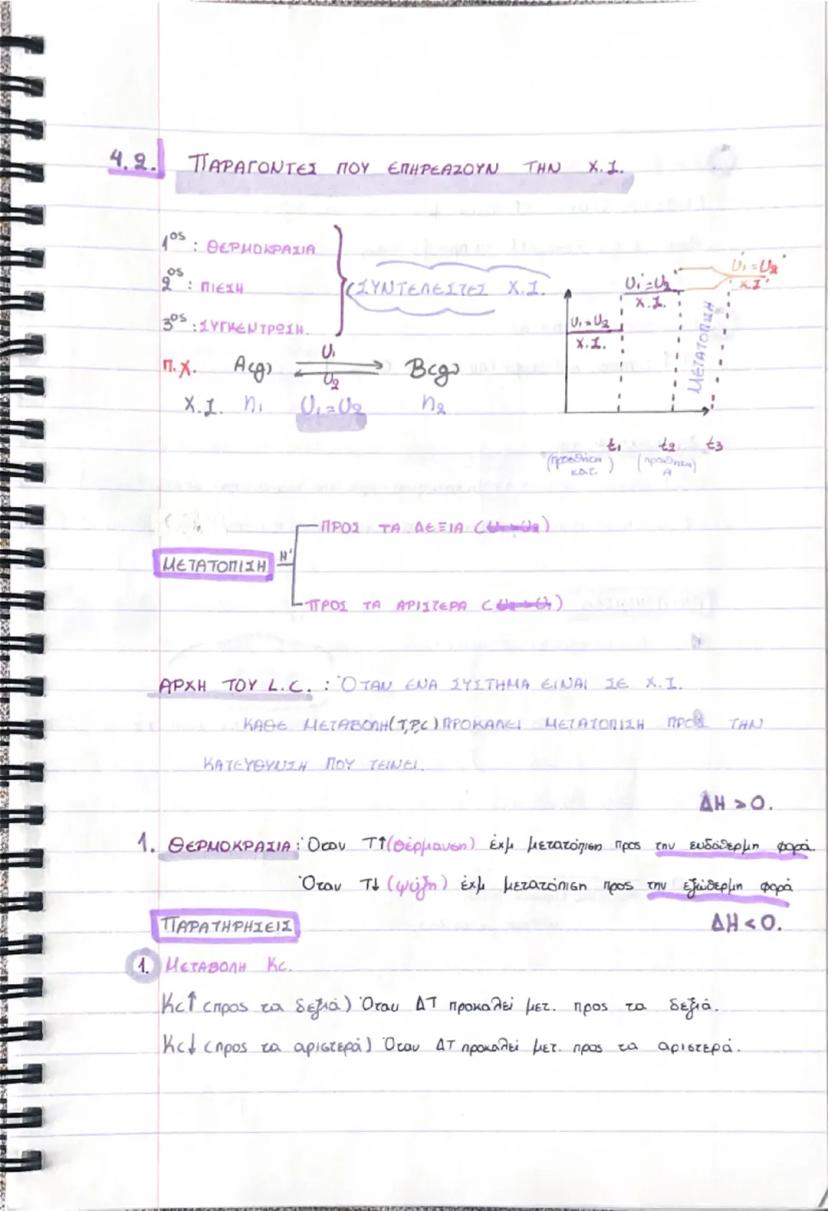 4.2. ΠΑΡΑΓΟΝΤΕΣ ΠΟΥ ΕΠΗΡΕΑΖΟΥΝ ΤΗΝ Χ.Ι.
1ος : ΘΕΡΜΟΚΡΑΣΙΑ
2ος : ΠΙΕΣΗ
3ος : ΣΥΓΚΕΝΤΡΩΣΗ.
ΣΥΝΤΕΛΕΣΤΕΣ Χ.Ι.
Π.Χ. A(g) U1 U2 B(g)
Χ.Ι. n1 U1=U2 n2
U1=U2
Χ.Ι.
U1'=U2'
Χ.Ι.
U1=U2
Χ.Ι'
ΜΕΤΑΤΟΠΙΣΗ
t1 t2 t3
(προσθήκη κατ.) (προσθήκη Α)
ΜΕΤΑΤΟΠΙΣΗ Ή
ΠΡΟΣ ΤΑ ΔΕΞΙΑ
ΠΡΟΣ ΤΑ ΑΡΙΣΤΕΡΑ
ΑΡΧΗ ΤΟΥ L.C. : ΌΤΑΝ ΕΝΑ ΣΥΣΤΗΜΑ ΕΙΝΑΙ ΣΕ Χ.Ι.
ΚΑΘΕ ΜΕΤΑΒΟΛΗ(T,P,C) ΠΡΟΚΑΛΕΙ ΜΕΤΑΤΟΠΙΣΗ ΠΡΟΣ ΤΗΝ
ΚΑΤΕΥΘΥΝΣΗ ΠΟΥ ΤΕΙΝΕΙ.
ΔΗ > 0.
1. ΘΕΡΜΟΚΡΑΣΙΑ : Όταν Τ↑ (θέρμανση) έχω μετατόπιση προς την ενδόθερμη φορά.
Όταν Τ↓ (ψύξη) έχω μετατόπιση προς την εξώθερμη φορά
ΠΑΡΑΤΗΡΗΣΕΙΣ ΔΗ < 0.
1. ΜΕΤΑΒΟΛΗ Kc.
Kc↑ (προς τα δεξιά) Όταν ΔΤ προκαλεί μετ. προς τα δεξιά.
Kc↓ (προς τα αριστερά) Όταν ΔΤ προκαλεί μετ. προς τα αριστερά.